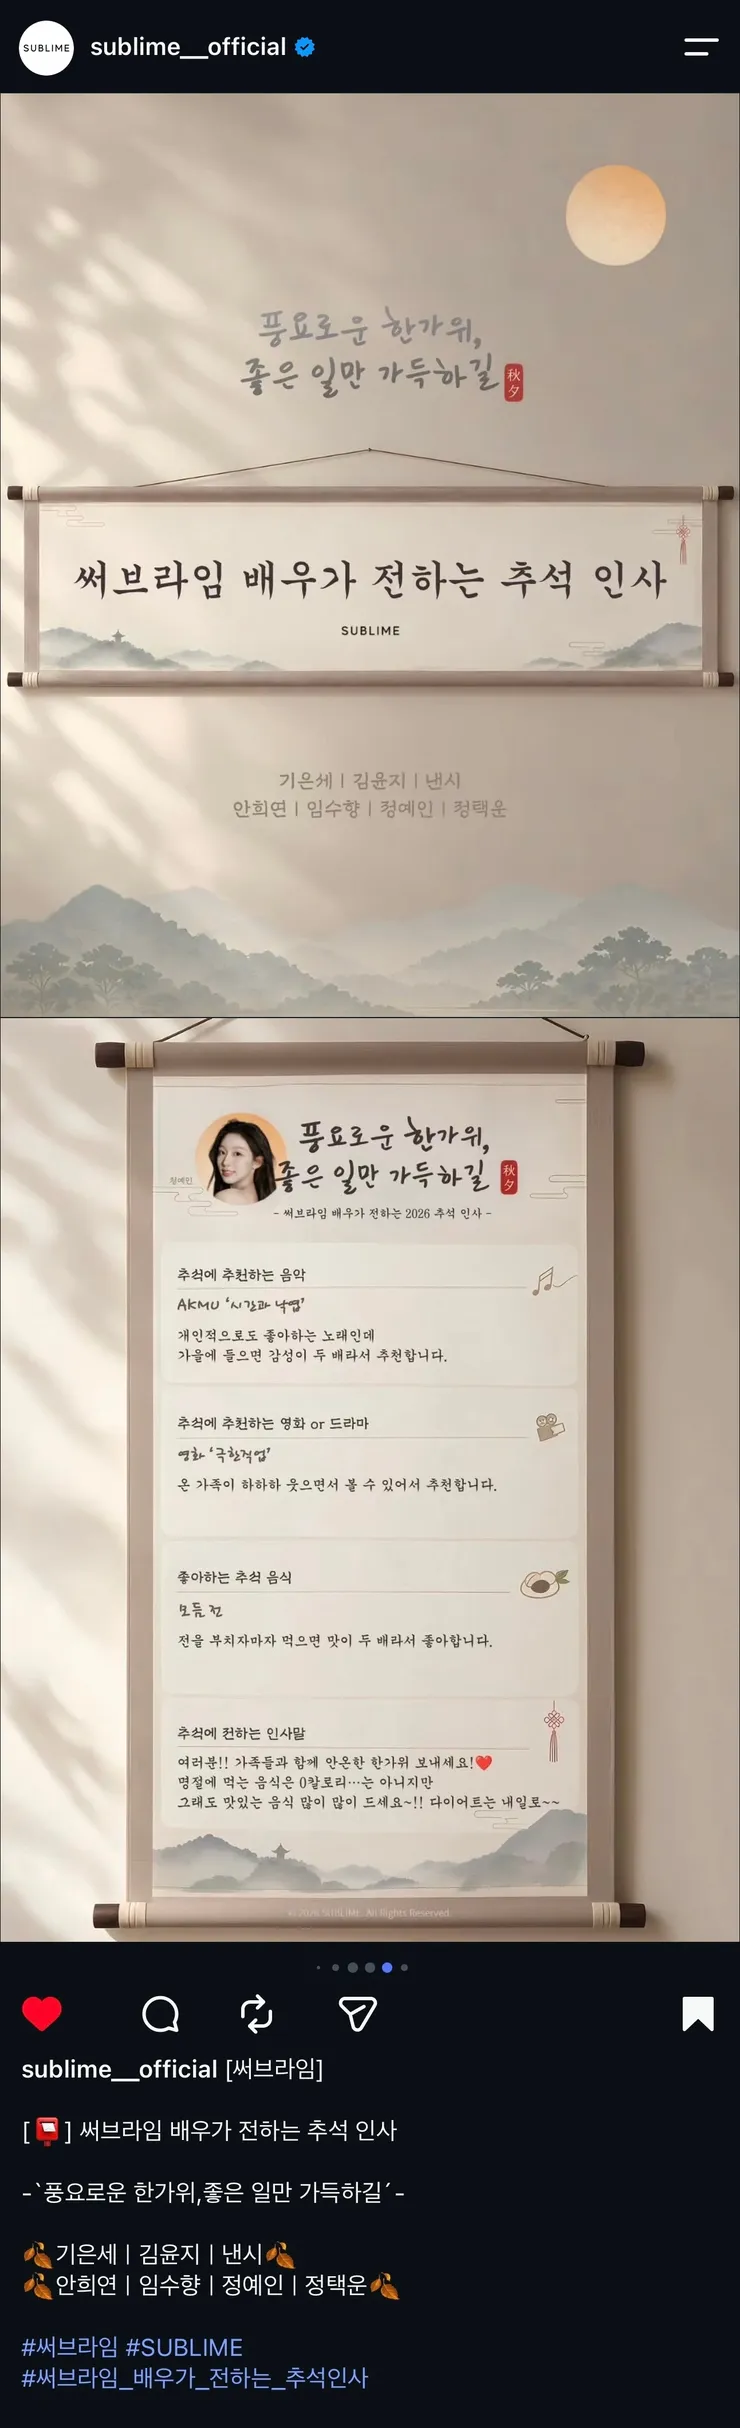 SUBLIME
sublime__official
풍요로운 한가위,
좋은 일만 가득하길
秋夕
써브라임 배우가 전하는 추석 인사
SUBLIME
기은세 | 김윤지 | 낸시
안희연 | 임수향 | 정예인 | 정택운
정예인
풍요로운 한가위,
좋은 일만 가득하길
秋夕
- 써브라임 배우가 전하는 2026 추석 인사 -
추석에 추천하는 음악
AKMU '시간과 낙엽'
개인적으로도 좋아하는 노래인데
가을에 들으면 감성이 두 배라서 추천합니다.
추석에 추천하는 영화 or 드라마
영화 '극한직업'
온 가족이 하하하 웃으면서 볼 수 있어서 추천합니다.
좋아하는 추석 음식
모듬전
전을 부치자마자 먹으면 맛이 두 배라서 좋아합니다.
추석에 전하는 인사말
여러분!! 가족들과 함께 안온한 한가위 보내세요!❤️
명절에 먹는 음식은 0칼로리…는 아니지만
그래도 맛있는 음식 많이 많이 드세요~!! 다이어트는 내일로~~
© 2026 SUBLIME. All Rights Reserved.
sublime__official [써브라임]
[📮] 써브라임 배우가 전하는 추석 인사
-`풍요로운 한가위,좋은 일만 가득하길´-
🍂기은세 | 김윤지 | 낸시🍂
🍂안희연 | 임수향 | 정예인 | 정택운🍂
#써브라임 #SUBLIME
#써브라임_배우가_전하는_추석인사